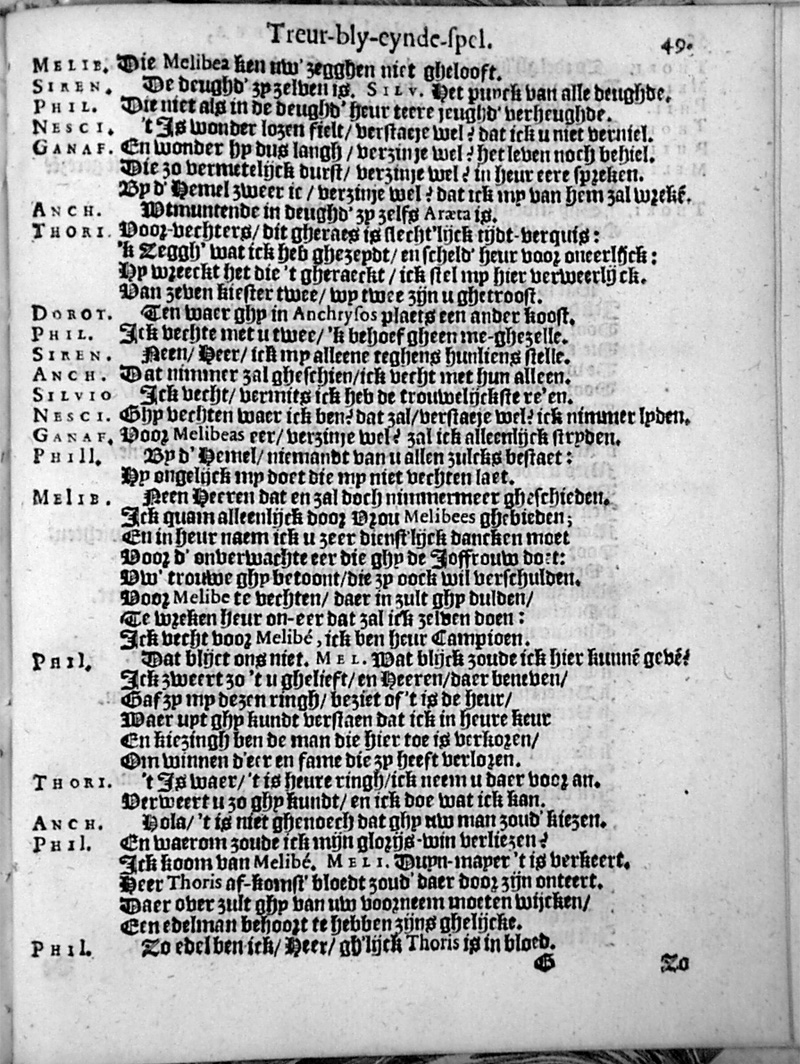 Treur-bly-eynde-spel. 49.
MELIB. Die Melibea ken uw' zegghen niet ghelooft.
SIREN. De deughd' zy zelven is. SILV. Het punck van alle deughde.
PHIL. Die niet als in de deughd' heur teere jeughd' verheughde.
NESCI. 't Is wonder lozen fielt/ verstaeje wel? dat ick u niet verniel.
GANAF. En wonder hy dus langh / verzinje wel? het leven noch behiel.
Die zo vermetelijck durst/ verzinje wel? in heur eere spreken.
By d' Hemel zweer ic / verzinje wel? dat ick my van hem zal wrekē.
ANCH. Wtmuntende in deughd' zy zelfs Aræta is.
THORI. Voor-vechters/ dit gheraes is slecht'lijck tijdt-verquis:
'k Zeggh' wat ick heb ghezeydt/ en scheld' heur voor oneerlijck:
Hy wreeckt het die 't gheraeckt / ick stel my hier verweerlijck.
Van zeven kiester twee/ wy twee zijn u ghetroost.
DOROT. Ten waer ghy in Anchrysos plaets een ander koost.
PHIL. Ick vechte met u twee/ 'k behoef gheen me-ghezelle.
SIREN. Neen/ Heer/ ick my alleene teghens hunliens stelle.
ANCH. Dat nimmer zal gheschien/ick vecht met hun alleen.
SILVIO Ick vecht/ vermits ick heb de trouwelijckste re'en.
NESCI. Ghy vechten waer ick ben? dat zal/verstaeje wel? ick nimmer lyden.
GANAF. Voor Melibeas eer/ verzinje wel? zal ick alleenlijck stryden.
PHILL. By d' Hemel/ niemandt van u allen zulcks bestaet:
Hy ongelijck my doet die my niet vechten laet.
MELIB. Neen Heeren dat en zal doch nimmermeer gheschieden.
Ick quam alleenlijck door Vrou Melibees ghebieden;
En in heur naem ick u zeer dienst'lijck dancken moet
Voor d' onverwachte eer die ghy de Joffrouw doet:
Uw' trouwe ghy betoont/die zy oock wil verschulden.
Voor Melibe te vechten/ daer in zult ghy dulden/
Te wreken heur on-eer dat zal ick zelven doen:
Ick vecht voor Melibé, ick ben heur Campioen.
PHIL. Dat blijct ons niet. MEL. Wat blijck zoude ick hier kunnē gevē?
Ick zweert zo 't u ghelieft/ en Heeren/daer beneven/
Gaf zy my dezen ringh/ beziet of 't is de heur/
Waer uyt ghy kundt verstaen dat ick in heure keur
En kiezingh ben de man die hier toe is verkoren/
Om winnen d'eer en fame die zy heeft verloren.
THORI. 't Is waer/ 't is heure ringh/ick neem u daer voor an.
Verweert u zo ghy kundt/ en ick doe wat ick kan.
ANCH. Hola/ 't is niet ghenoech dat ghy uw man zoud' kiezen.
PHIL. En waerom zoude ick mijn glorijs-win verliezen?
Ick koom van Melibé. MELI. Duyn-mayer 't is verkeert.
Heer Thoris af-komst' bloedt zoud' daer door zijn onteert.
Daer over zult ghy van uw voorneem moeten wijcken/
Een edelman behoort te hebben zijns ghelijcke.
PHIL. Zo edel ben ick/ Heer/ gh'lijck Thoris is in bloed.
G Zo